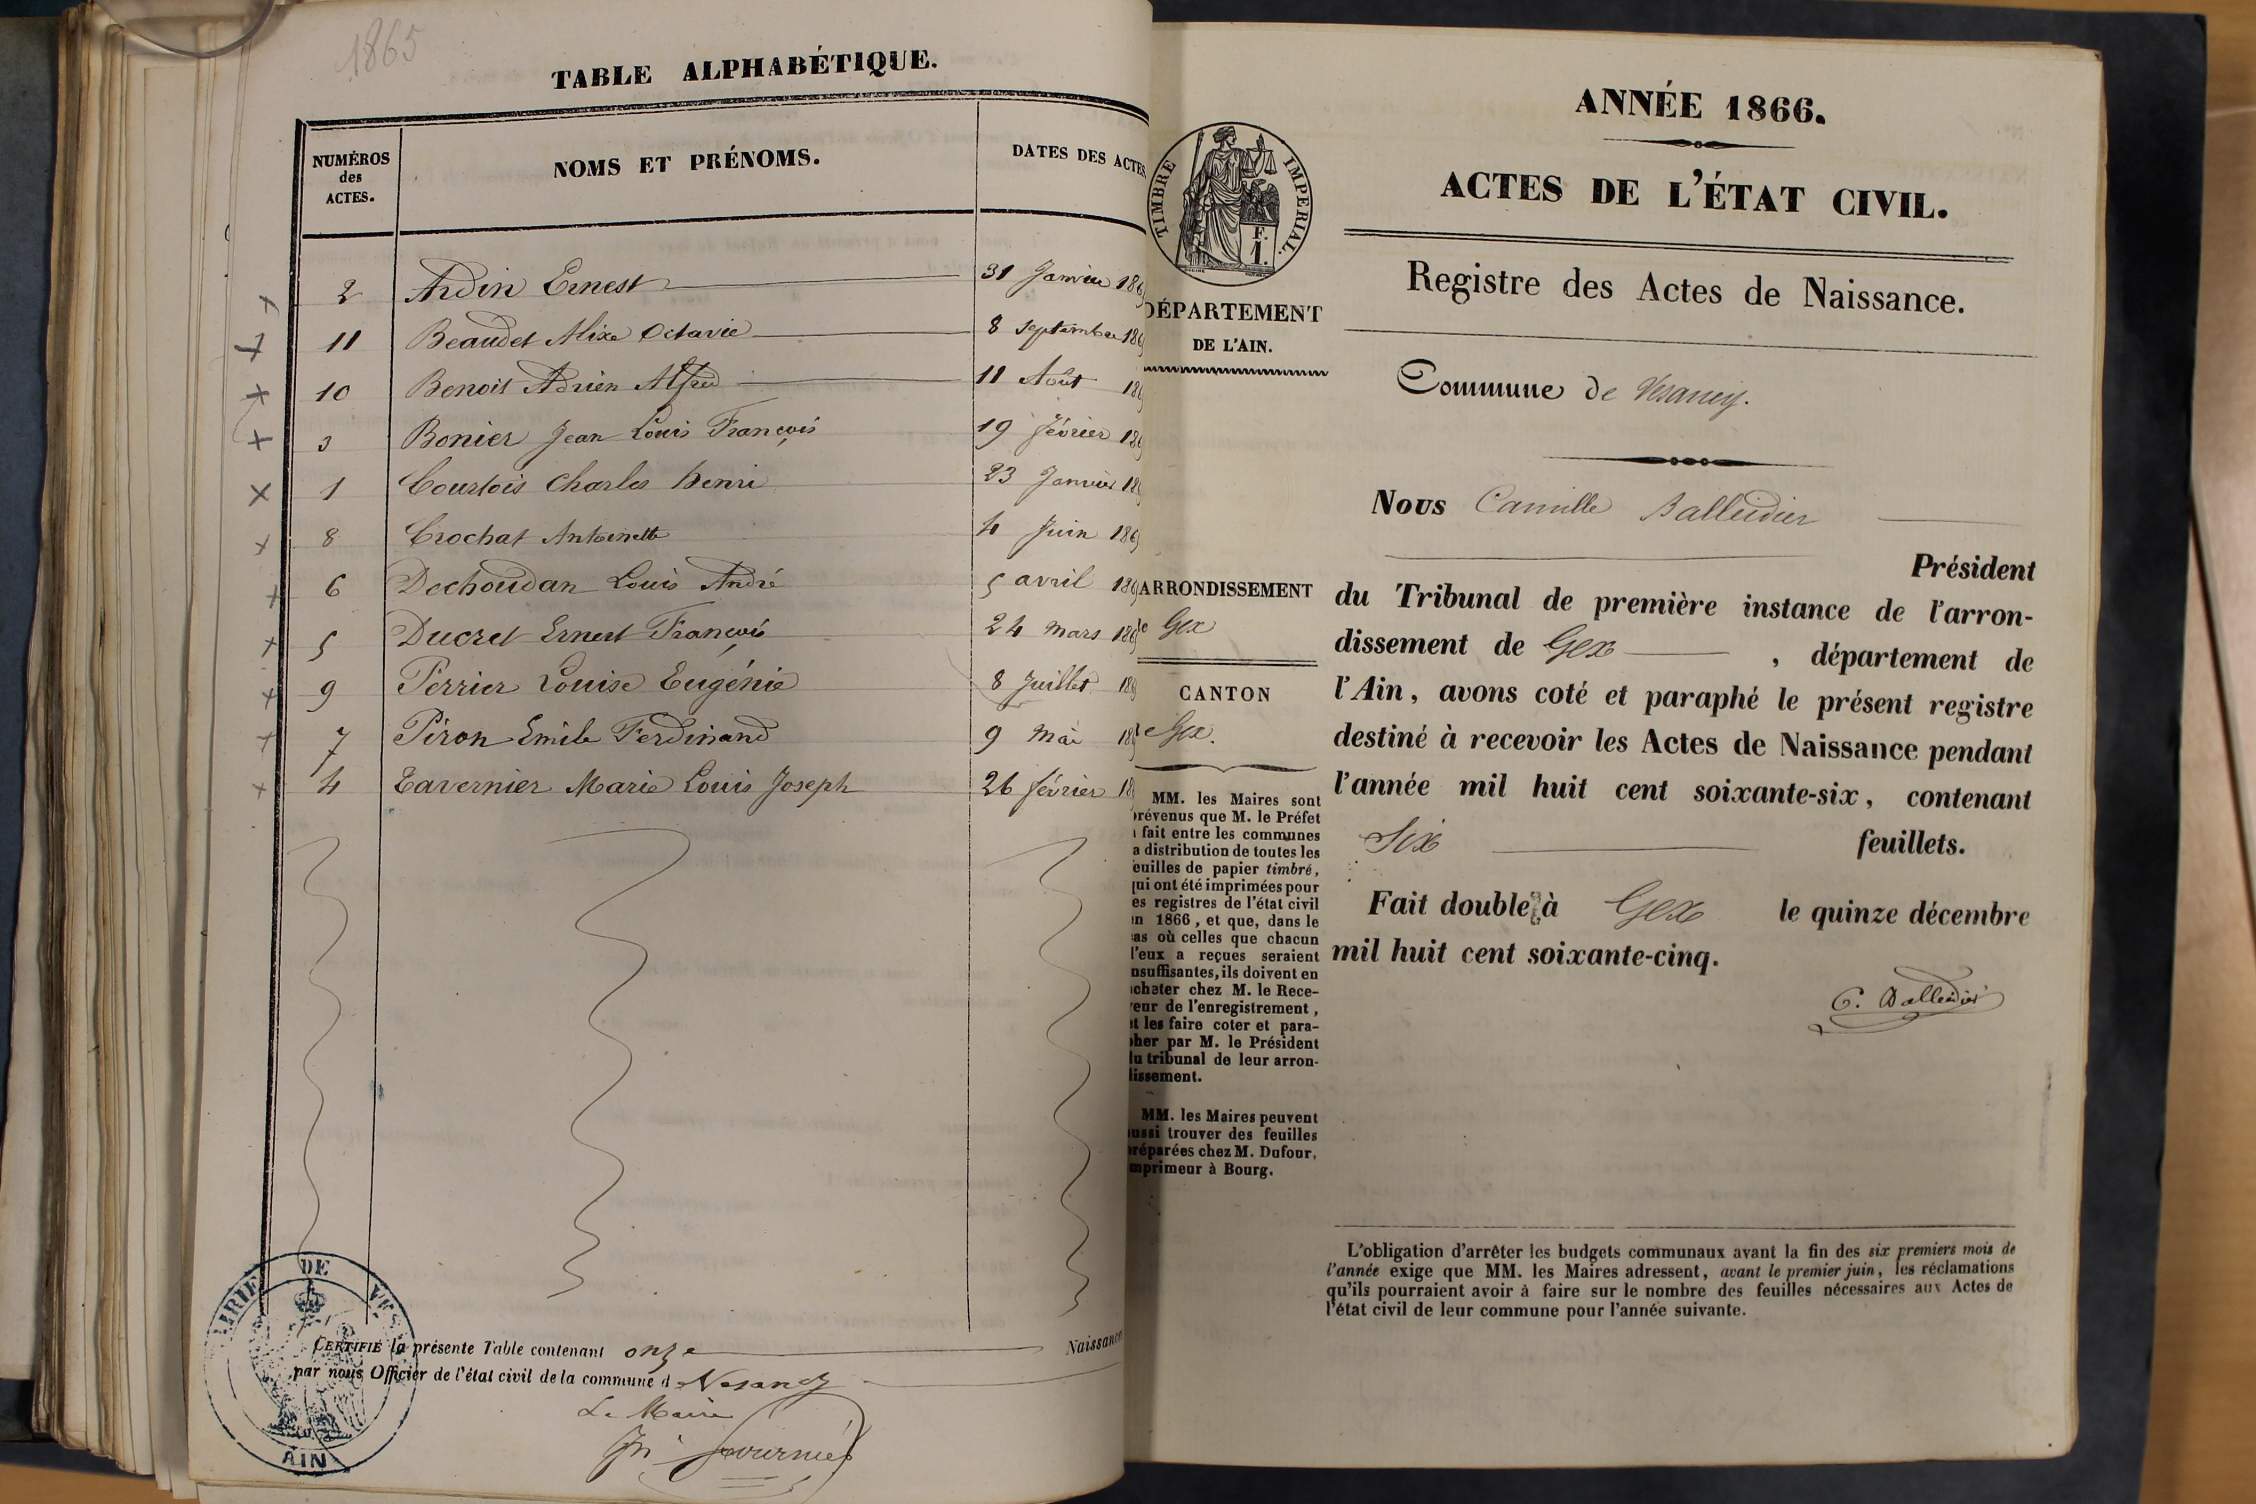 1865
TABLE ALPHABÉTIQUE.
NUMÉROS
des
ACTES.
NOMS ET PRÉNOMS.
DATES DES ACTES
2 Ardin Ernest 31 Janvier 186
11 Beaudet Alixe Octavie 8 septembre 186
10 Benoit Adrien Alfred 11 Août 186
3 Bonier Jean Louis François 19 février 186
1 Courtois Charles henri 23 Janvier 18
8 Crochat Antoinette 4 Juin 186
6 Dechoudan Louis André 5 avril 186
5 Ducret Ernest François 24 mars 186
9 Perrier Louise Eugénie 8 Juillet 18
7 Piron Emile Ferdinand 9 Mai 18
4 Tavernier Marie Louis Joseph 26 février 18
CERTIFIÉ la présente Table contenant onze Naissance
par nous Officier de l'état civil de la commune de Vesancy
Le Maire
Fournier
MAIRIE DE VES
AIN
TIMBRE IMPERIAL.
F.
1.
DÉPARTEMENT
DE L'AIN.
ARRONDISSEMENT
de Gex
CANTON
de Gex.
MM. les Maires sont
prévenus que M. le Préfet
a fait entre les communes
la distribution de toutes les
feuilles de papier timbré,
qui ont été imprimées pour
les registres de l'état civil
en 1866, et que, dans le
cas où celles que chacun
d'eux a reçues seraient
insuffisantes, ils doivent en
acheter chez M. le Rece-
veur de l'enregistrement,
et les faire coter et para-
pher par M. le Président
du tribunal de leur arron-
dissement.
MM. les Maires peuvent
aussi trouver des feuilles
préparées chez M. Dufour,
imprimeur à Bourg.
ANNÉE 1866.
ACTES DE L'ÉTAT CIVIL.
Registre des Actes de Naissance.
Commune de Vesancy.
Nous Camille Balleidier
Président
du Tribunal de première instance de l'arron-
dissement de Gex, département de
l'Ain, avons coté et paraphé le présent registre
destiné à recevoir les Actes de Naissance pendant
l'année mil huit cent soixante-six, contenant
Six feuillets.
Fait double à Gex le quinze décembre
mil huit cent soixante-cinq.
C. Balleidier
L'obligation d'arrêter les budgets communaux avant la fin des six premiers mois de
l'année exige que MM. les Maires adressent, avant le premier juin, les réclamations
qu'ils pourraient avoir à faire sur le nombre des feuilles nécessaires aux Actes de
l'état civil de leur commune pour l'année suivante.